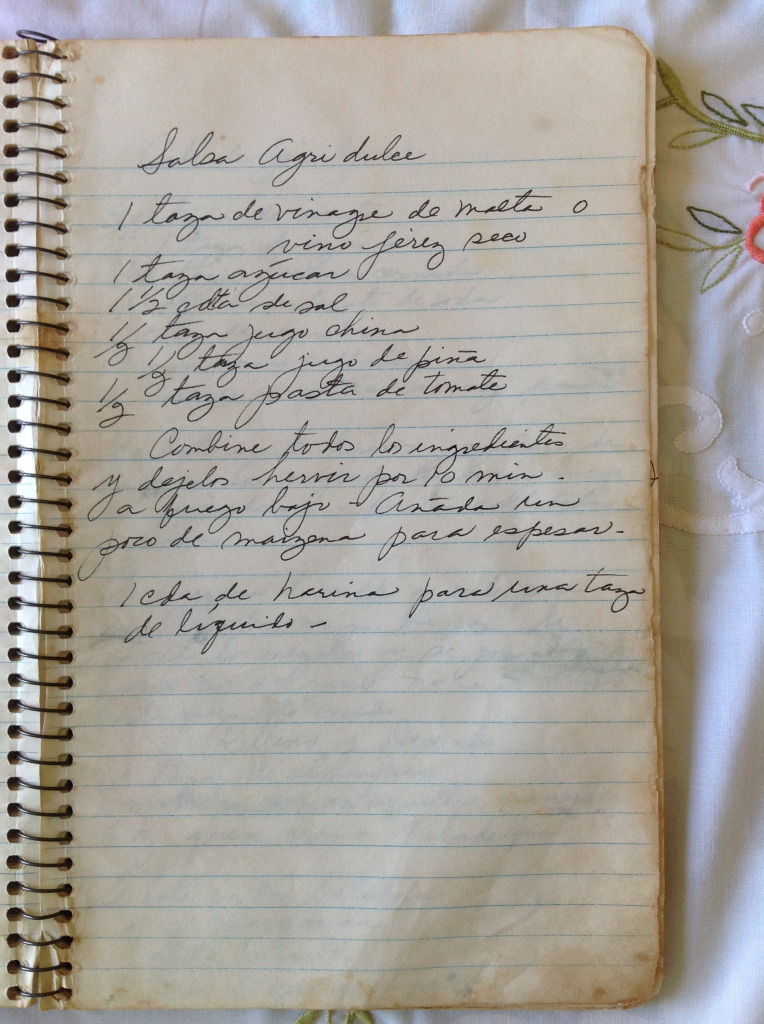 Salsa Agri dulce
1 taza de vinagre de malta o
vino jérez seco
1 taza azúcar
1 1/2 cdta de sal
1/2 taza jugo china
1/2 taza jugo de piña
1/2 taza pasta de tomate
Combine todos los ingredientes
y dejelos hervir por 10 min.
a fuego bajo - Añada un
poco de maizena para espesar.
1 cda de harina para una taza
de líquido -